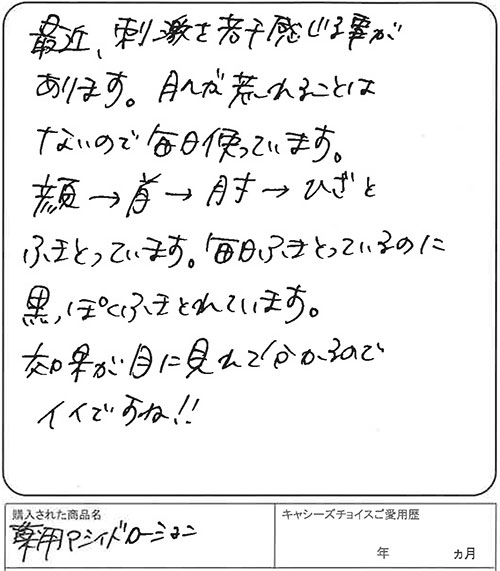 最近、刺激を若干感じる事が
あります。肌が荒れることは
ないので毎日使っています。
顔→首→肘→ひざと
ふきとっています。毎日ふきとっているのに
黒っぽくふきとれています。
効果が目に見れて分かるので
イイですね!!
購入された商品名
薬用アシッドローション
キャシーズチョイスご愛用歴
年 ヵ月